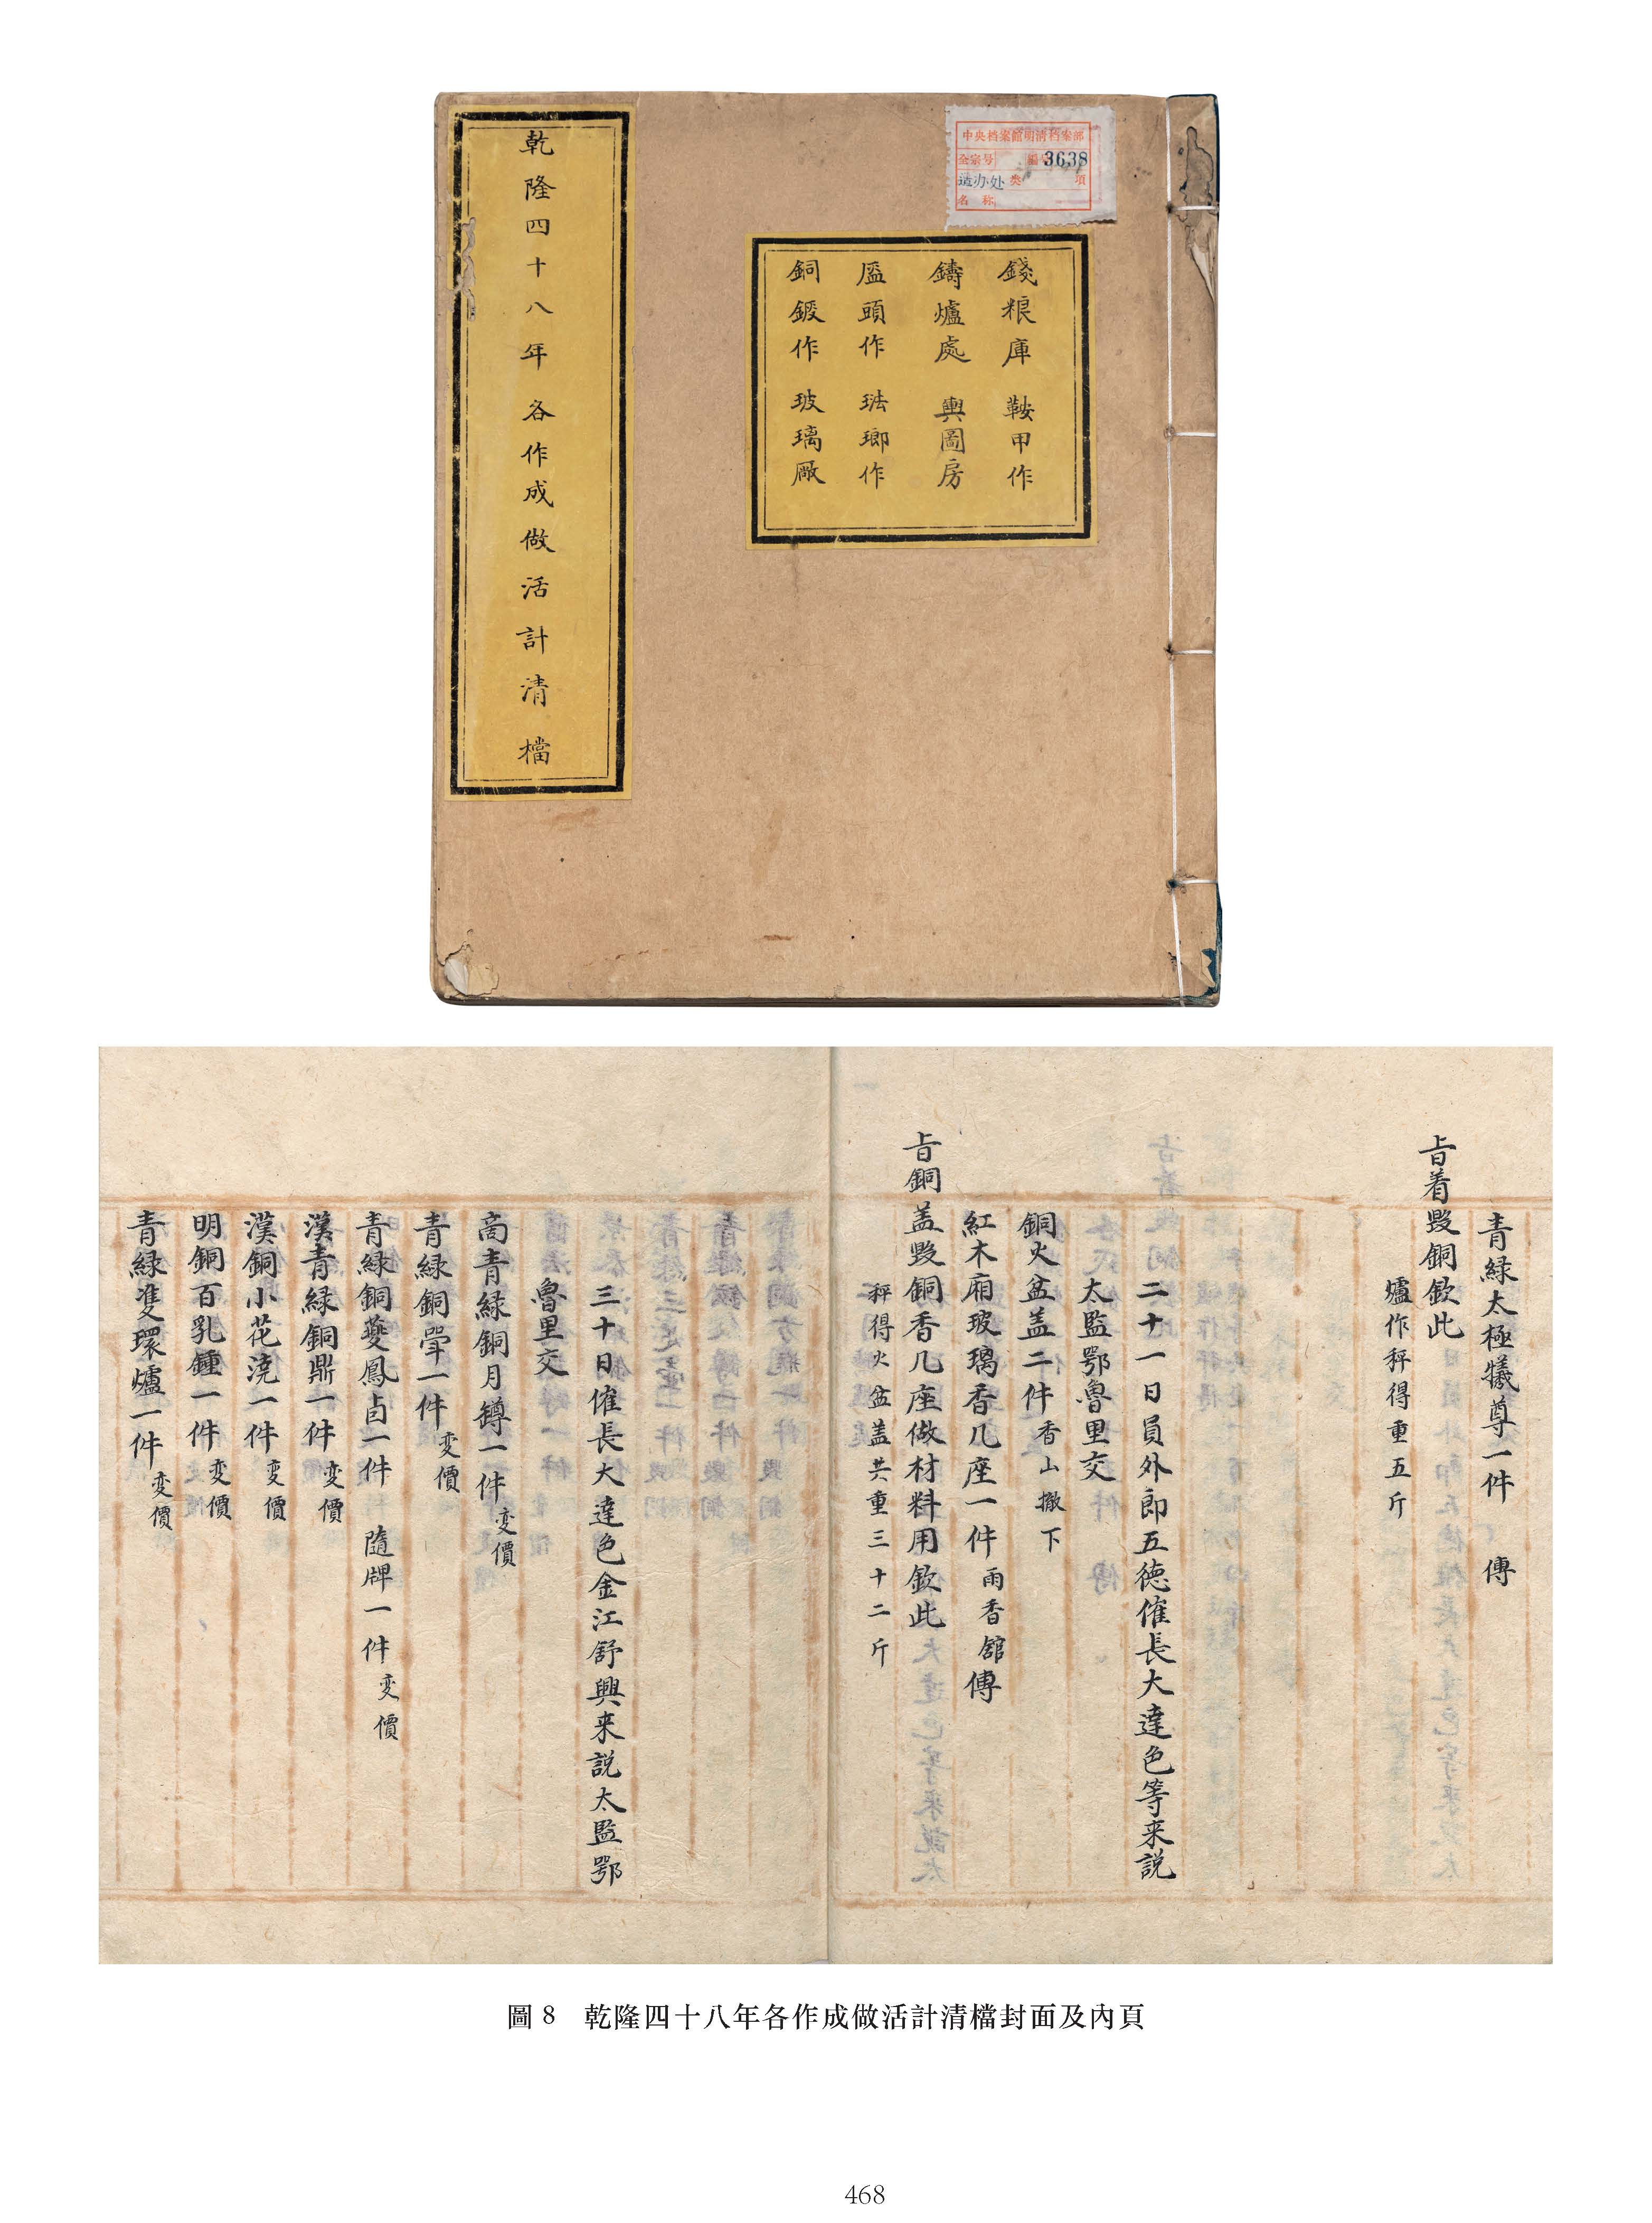 乾隆四十八年各作成做活計清檔
中央档案館明清档案部
全宗号 編号3638
造办处 类 項
名称
錢粮庫 鞍甲作
鑄爐處 輿圖房
匣頭作 琺瑯作
銅鋄作 玻璃廠
青緑太極犧尊一件 傳
旨着毀銅欽此
爐作秤得重五斤
二十一日員外郎五德催長大達色等来説
太監鄂魯里交
銅火盆盖二件香山撤下
紅木廂玻璃香几座一件雨香舘傳
旨銅盖毀銅香几座做材料用欽此
秤得火盆盖共重三十二斤
三十日催長大達色金江舒興来説太監鄂
魯里交
商青緑銅月鐏一件変價
青緑銅斝一件変價
青緑銅夔鳳卣一件 隨牌一件変價
漢青緑銅鼎一件変價
漢銅小花澆一件変價
明銅百乳鍾一件変價
青緑雙環爐一件変價
圖8 乾隆四十八年各作成做活計清檔封面及內頁
468